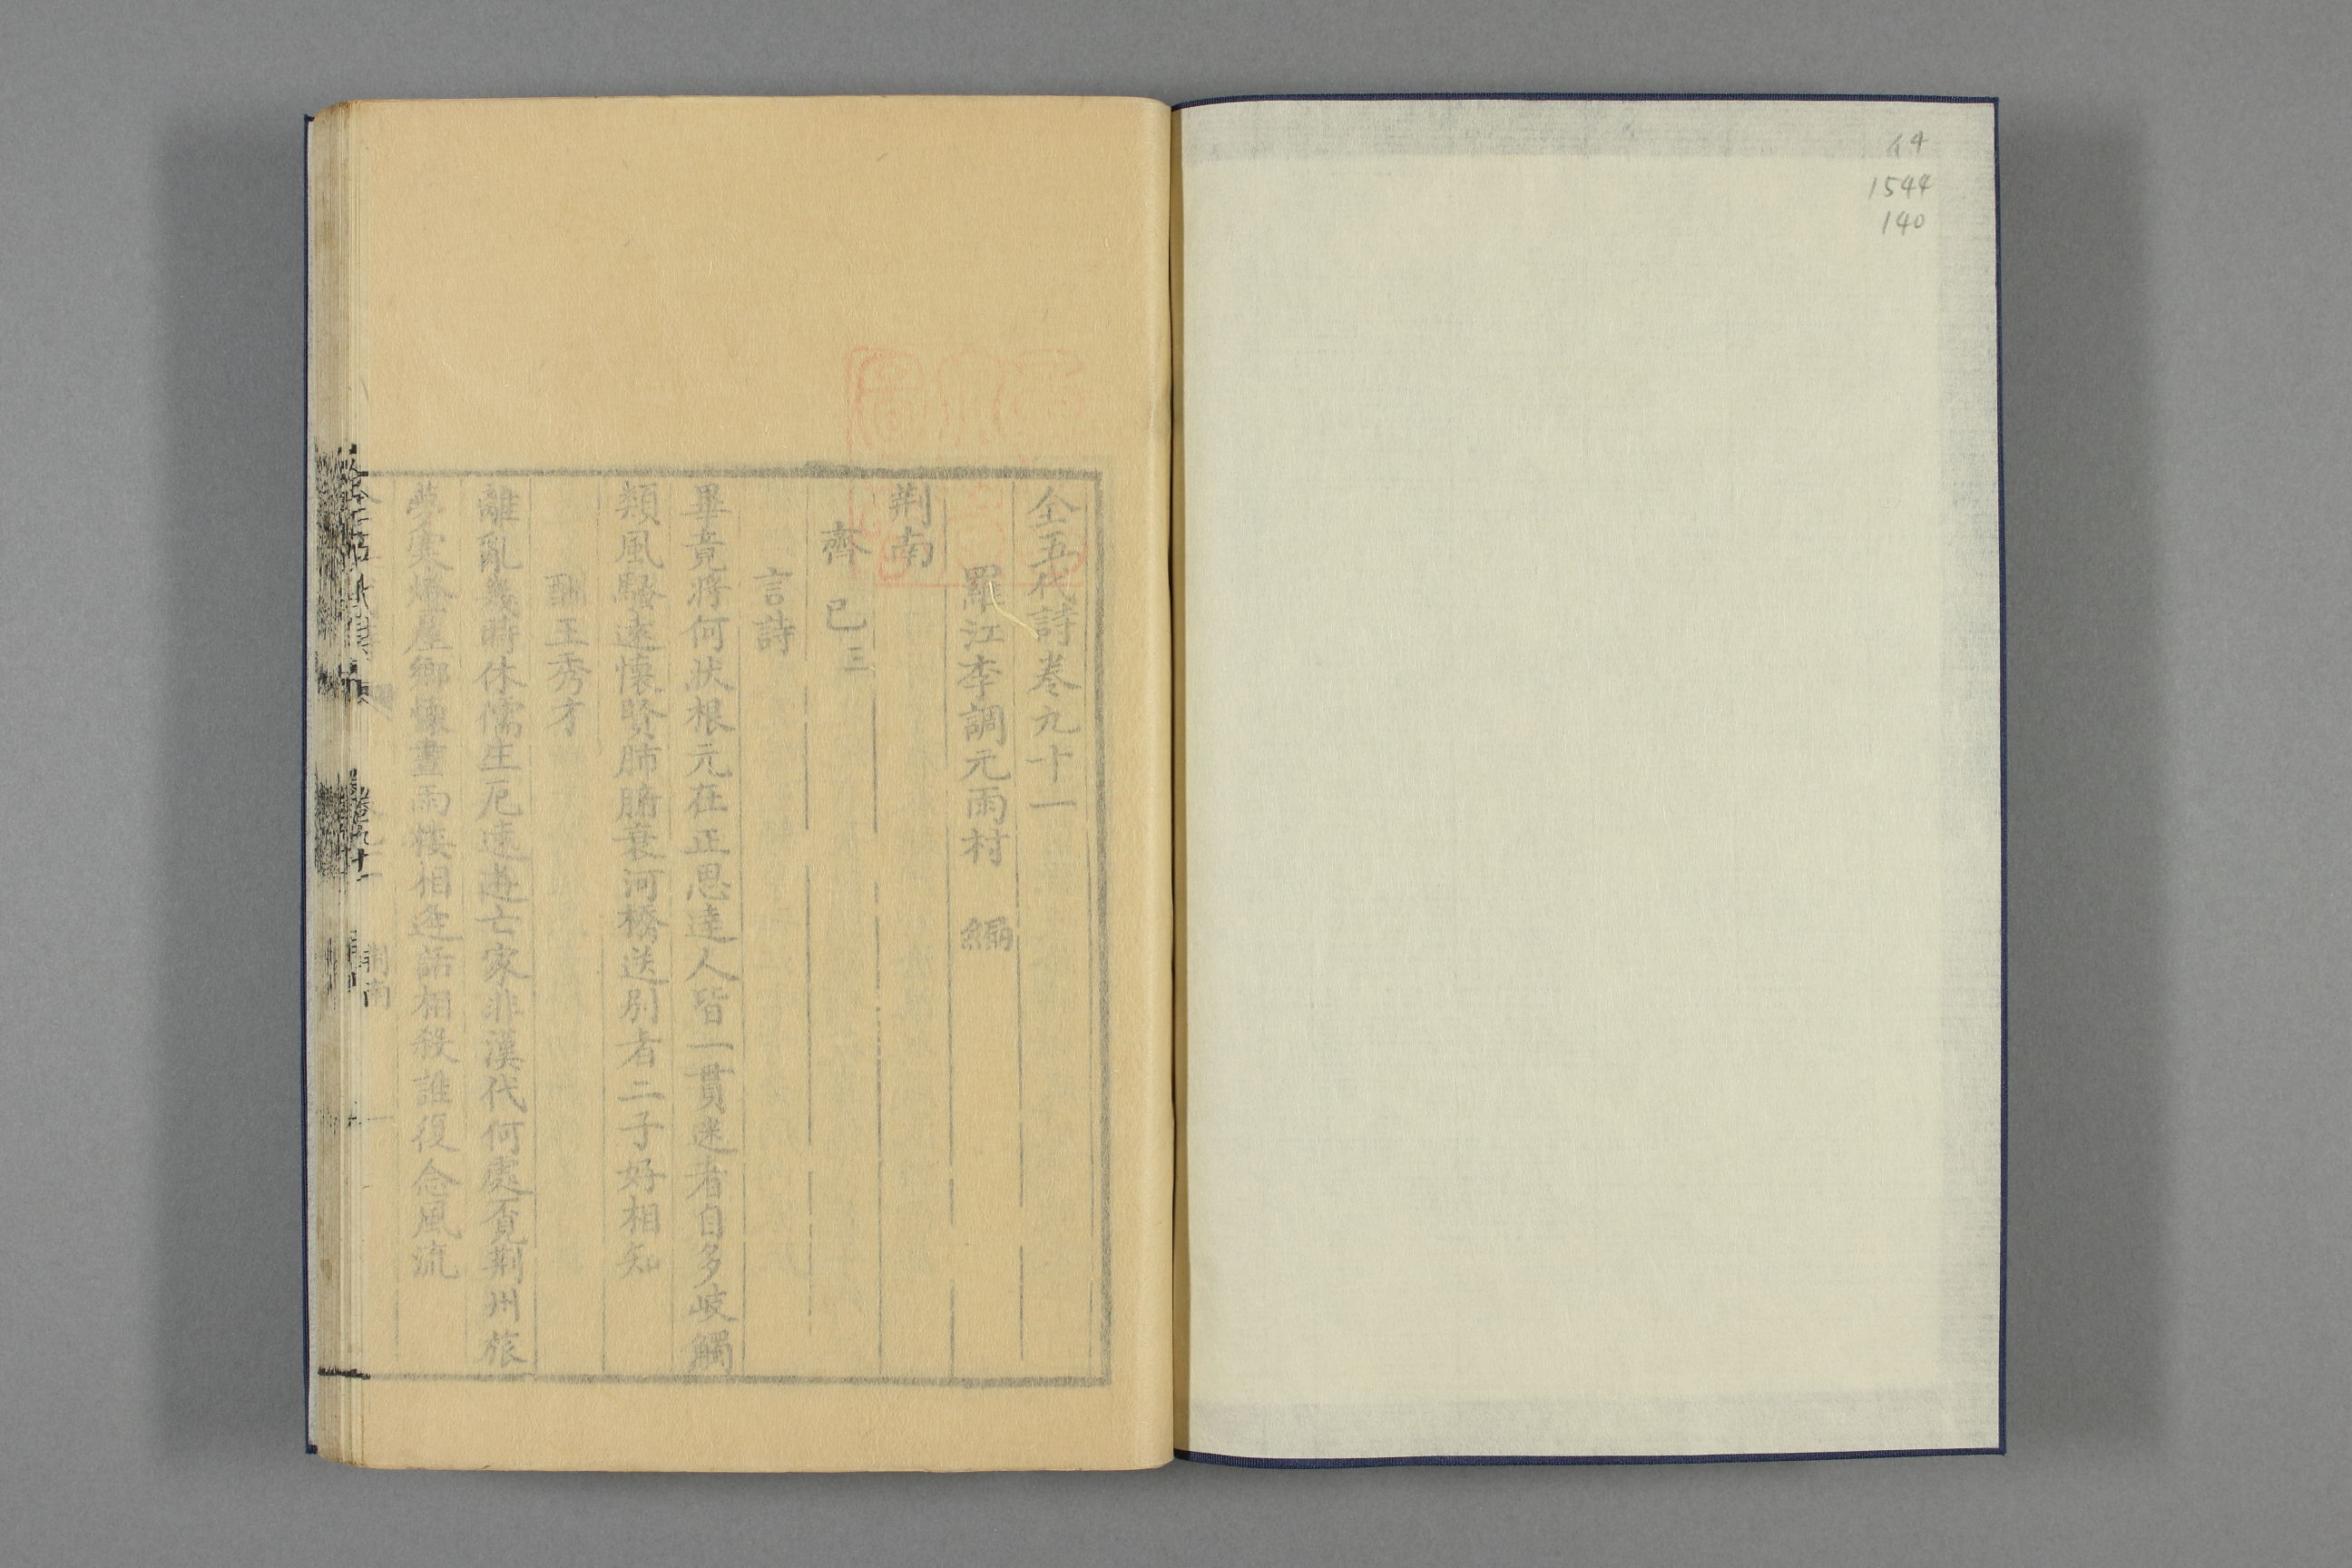 64
1544
140
全五代詩卷九十一
羅江李調元雨村 編
荆南
齊己三
言詩
畢竟將何狀根元在正思達人皆一貫迷者自多岐觸
類風騷遠懷賢肺腑衰河橋送別者二子好相知
酬王秀才
離亂幾時休儒生厄遠遊亡家非漢代何處覔荆州旅
夢寒燈屋鄉懷晝雨樓相逢話相殺誰復念風流
荆南
一